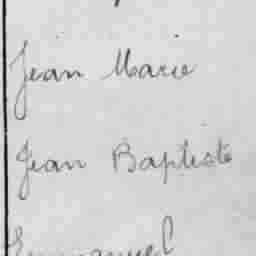 Jean Marie
Jean Baptiste
Emmanuel